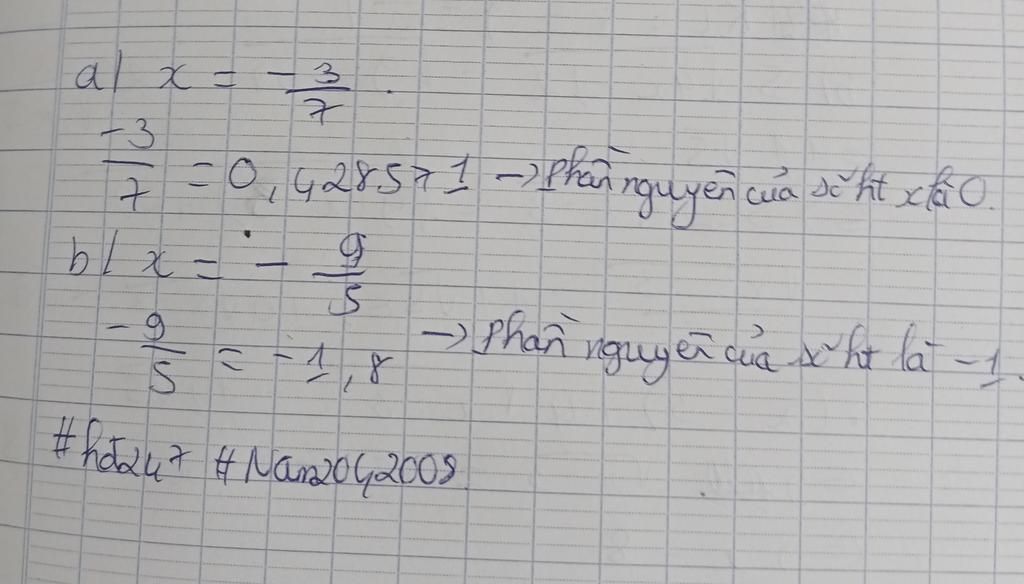 a/ x = -3/7.
-3/7 = 0,428571 → Phần nguyên của số ht x là 0.
b/ x = -9/5
-9/5 = -1,8 → Phần nguyên của số ht là -1.
#hđ247 #Nan2042009